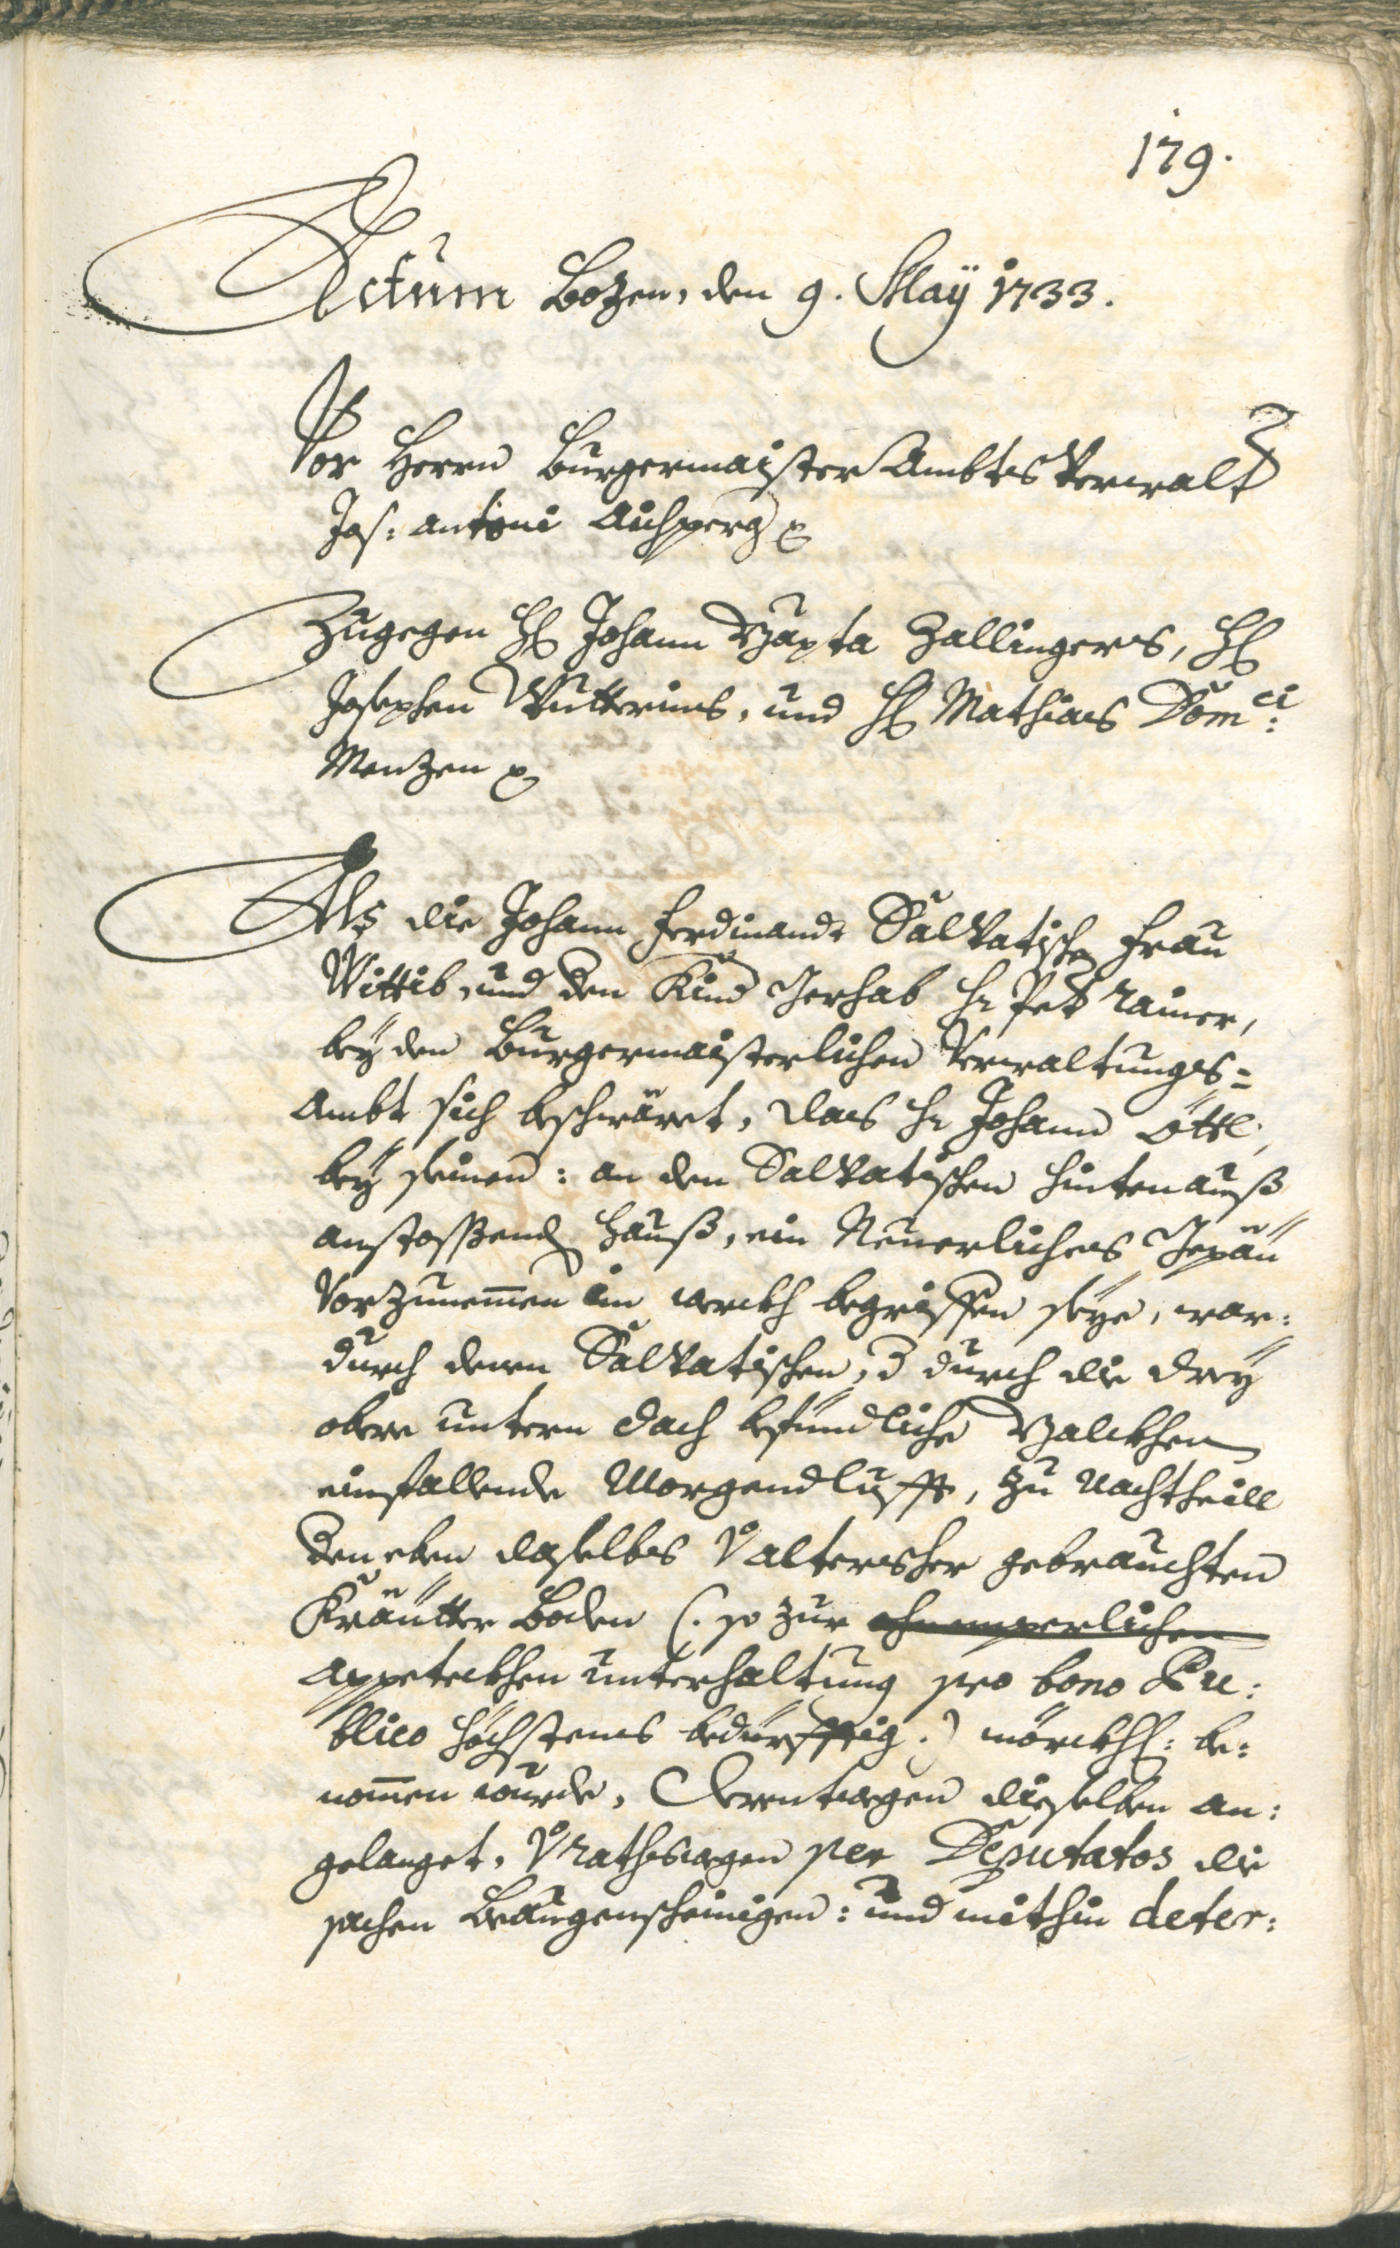 179.
Actum Bozen, den 9. May 1733.
Vor Herrn Burgermaister Ambts Verwalt
Jos: Antoni Aichperg
Zugegen H: Johann Bapta Zallingers, H:
Josephen Wutterins, und H: Mathias Dom:ci
Menzen
Als die Johann Ferdinand Salvatische Frau
Wittib, und den Kind Gerhab Hr Pet Rainer,
bey den Burgermaisterlichen Verwaltungs=
Ambt sich beschwäret, das Hr Johann Öttl,
bey seinen: an den Salvatischen hintenauß
anstossend Hauß, ein Neuerliches Gepäu
vorzunemen im werckh begriffen seye, war:
durch denen Salvatischen, durch die drey
obere untern dach befündliche Balckhen
einfallende Morgendlufft, zu nachtheill
den eben daselbs Valterisher gebrauchten
Kräutter Boden (: so zur
appeteckhen unterhaltung pro bono Pu:
blico höchstens bedürfftig :) mörckhl: be:
nomen wurde, Derentwegen dieselben an:
gelanget, Rathswegen per Deputatos die
sachen beaugenscheinigen: und mithin deter: